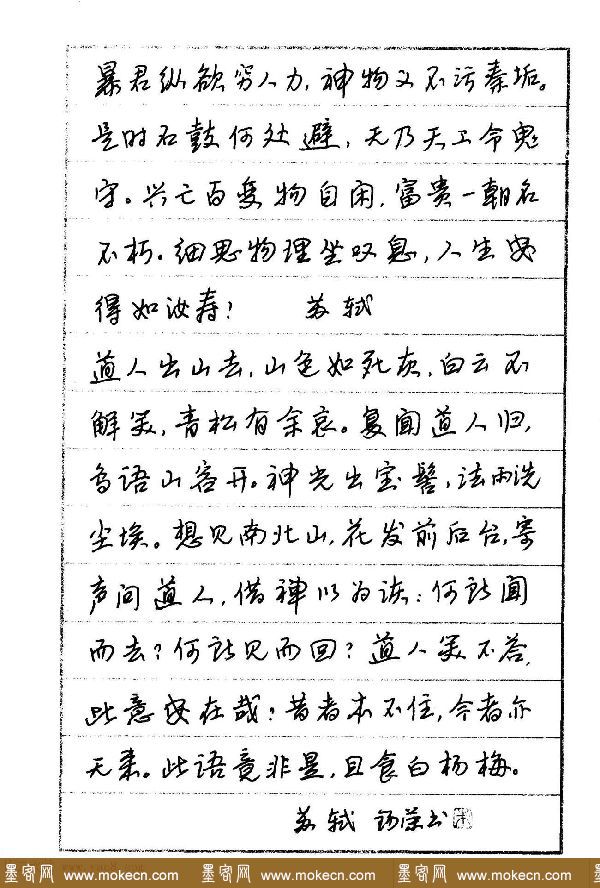 暴君纵欲穷人力,神物义不污秦垢。
是时石鼓何处避,无乃天工令鬼
守。兴亡百变物自闲,富贵一朝名
不朽。细思物理坐叹息,人生安
得如汝寿! 苏轼
道人出山去,山色如死灰,白云不
解笑,青松有余哀。复闻道人归,
鸟语山容开。神光出宝髻,法雨洗
尘埃。想见南北山,花发前后台,寄
声问道人,借禅以为诙:何所闻
而去?何所见而回?道人笑不答,
此意安在哉?昔者本不住,今者亦
无来。此语竟非是,且食白杨梅。
苏轼 书
墨客网 www.mokecn.com 墨客网 www.mokecn.com 墨客网 www.mokecn.com